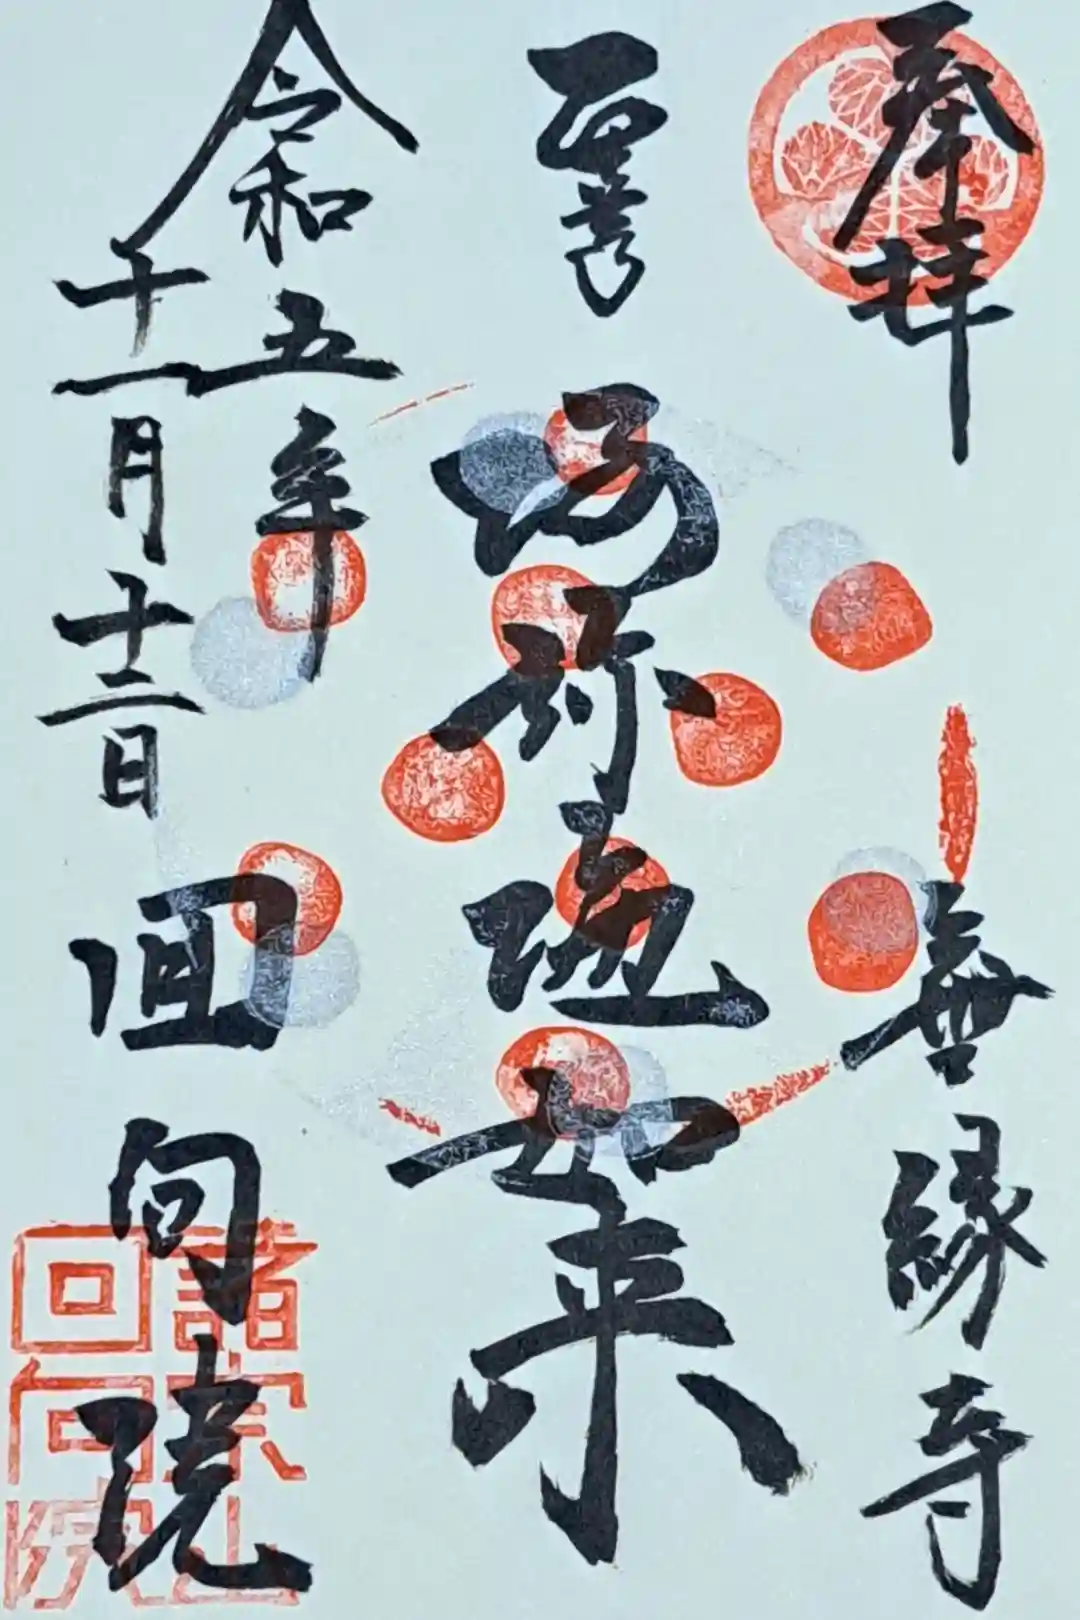 奉拝
無縁寺
阿弥陀如来
令和五年
十一月十二日
回向院
諸宗山
回向院